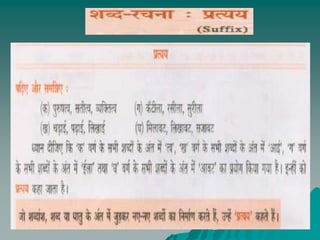 शब्द-रचना : प्रत्यय
(Suffix)
प्रत्यय
पढ़िए और समझिए :
(क) पुरुषत्व, सतीत्व, व्यक्तित्व (ग) कँटीला, रसीला, सुरीला
(ख) चढ़ाई, पढ़ाई, लिखाई (घ) मिलावट, लिखावट, सजावट
ध्यान दीजिए कि 'क' वर्ग के सभी शब्दों के अंत में 'त्व', 'ख' वर्ग के सभी शब्दों के अंत में 'आई', 'ग' वर्ग
के सभी शब्दों के अंत में 'ईला' तथा 'घ' वर्ग के सभी शब्दों के अंत में 'आवट' का प्रयोग किया गया है। इन्हीं को
प्रत्यय कहा जाता है।
जो शब्दांश, शब्द या धातु के अंत में जुड़कर नए-नए शब्दों का निर्माण करते हैं, उन्हें 'प्रत्यय' कहते हैं।